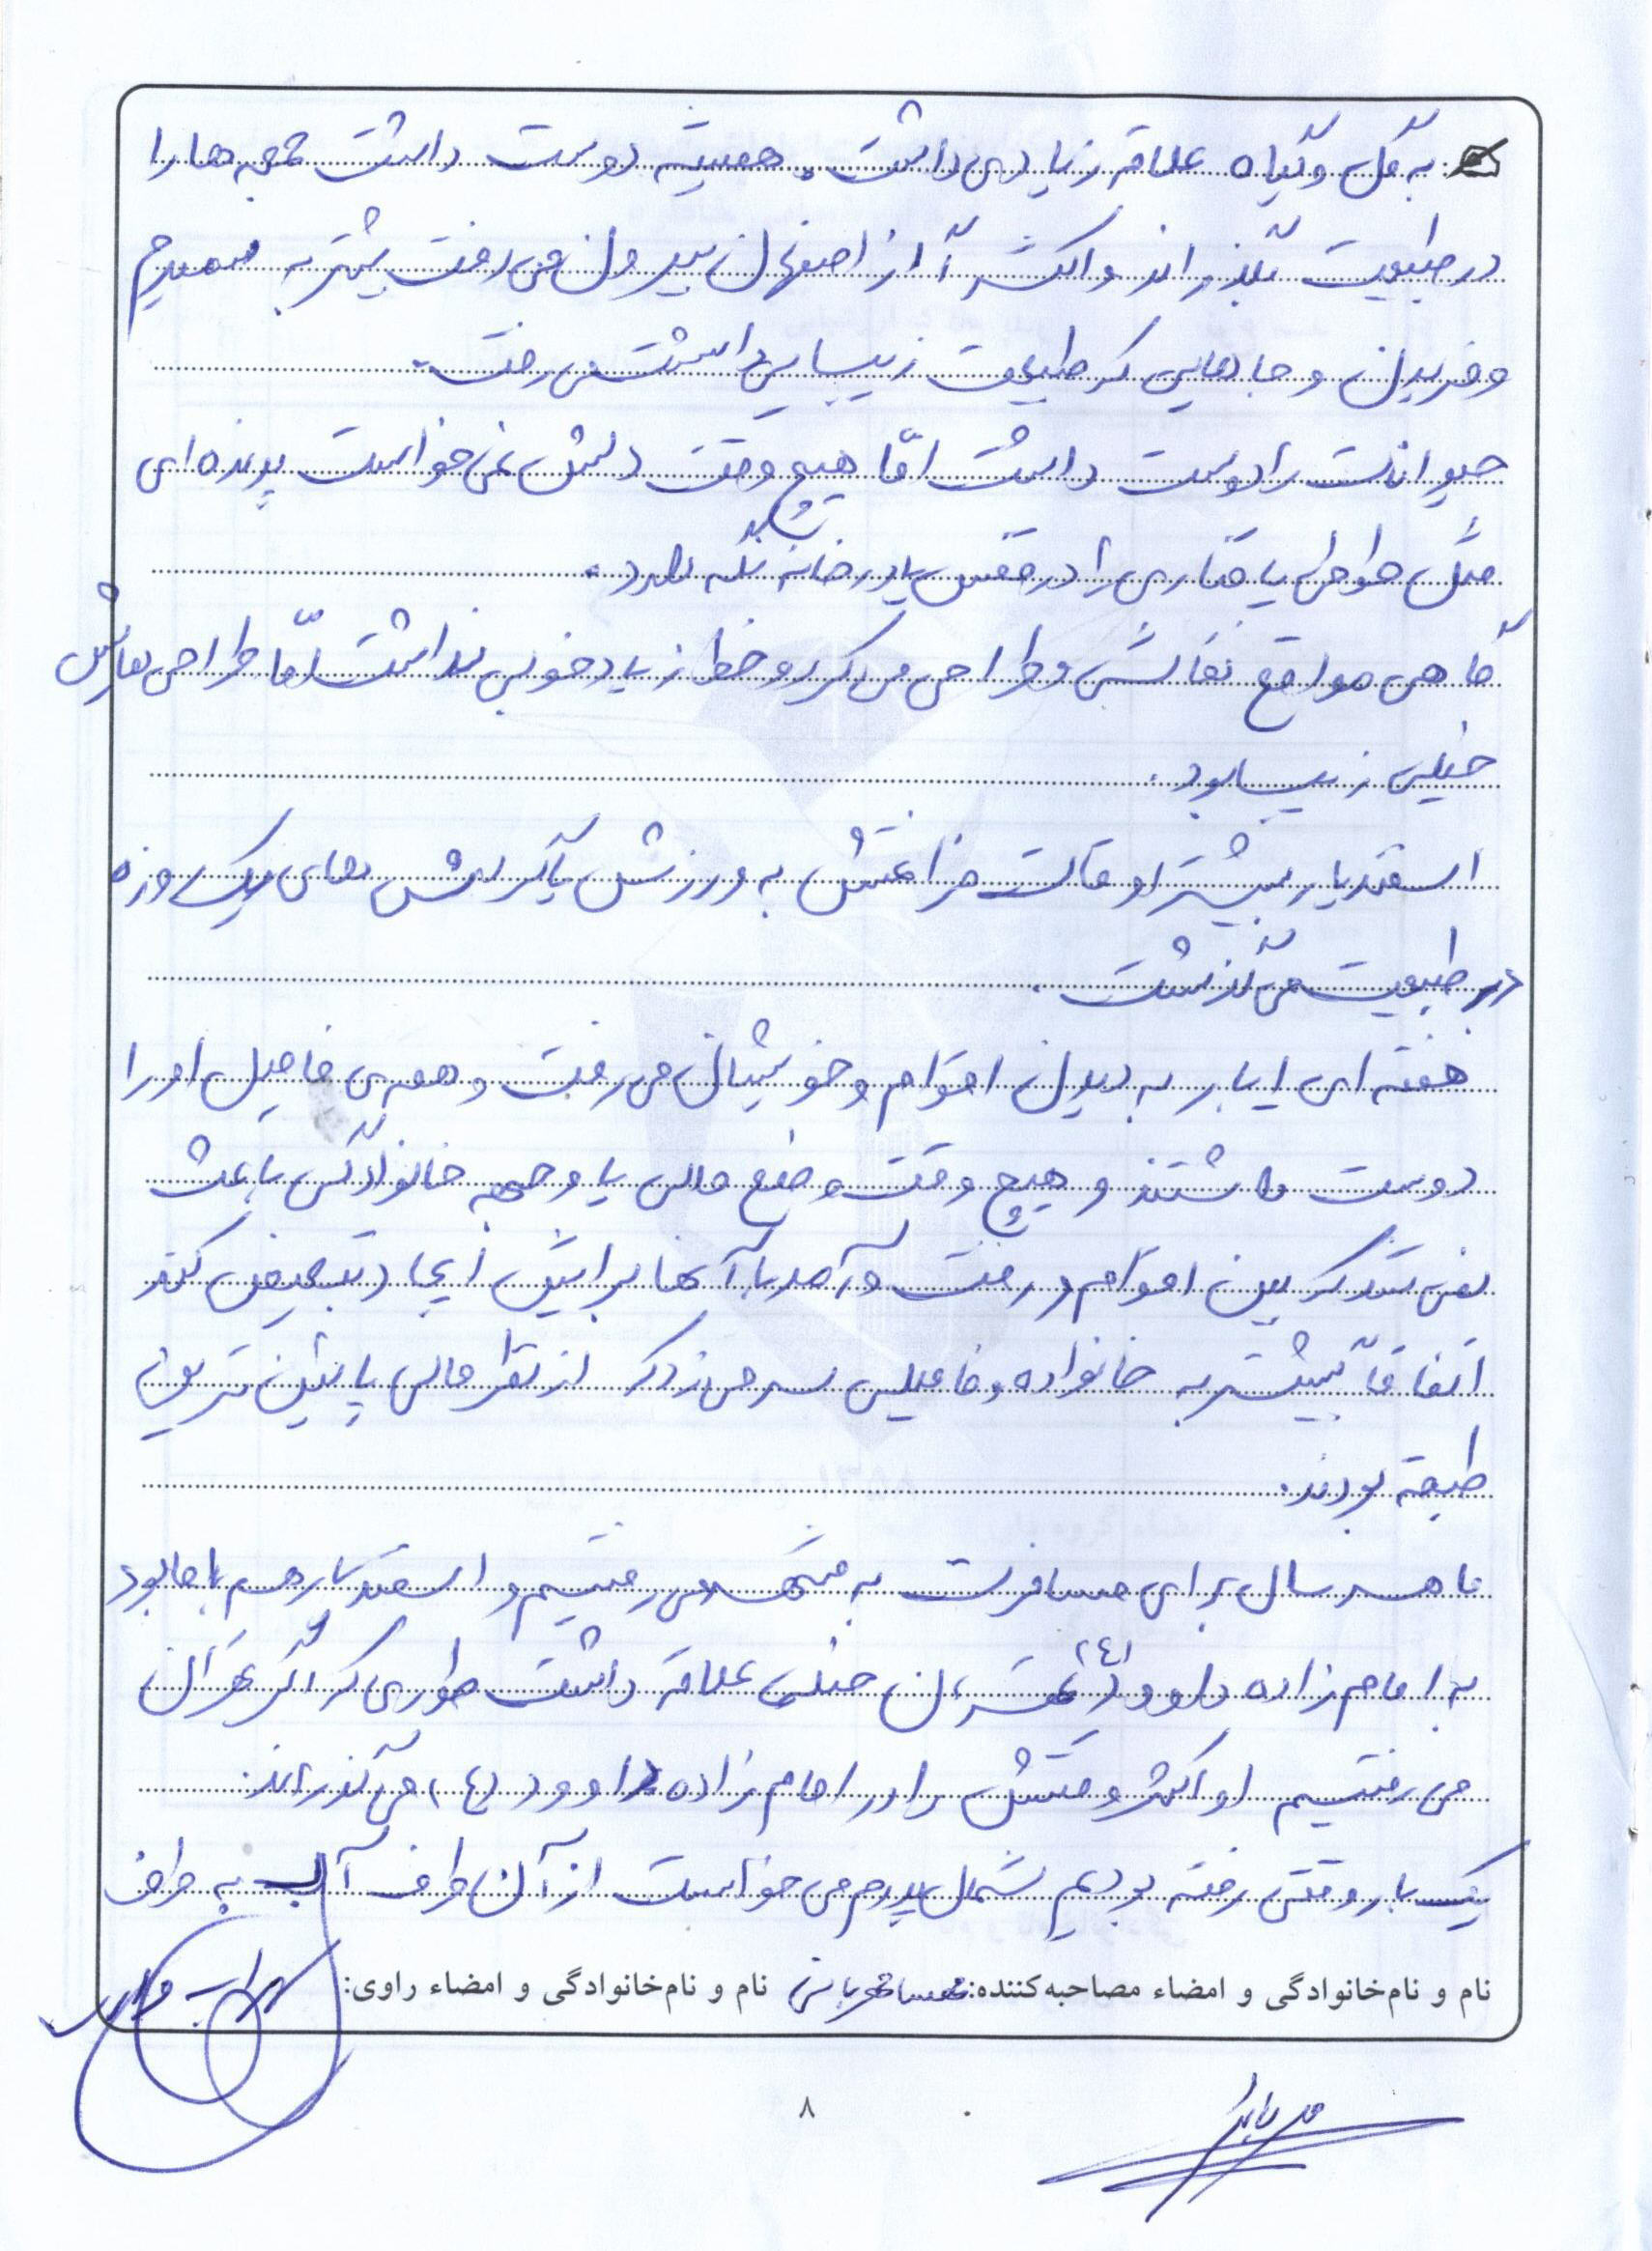 به گل و گیاه علاقه زیادی داشت. همیشه دوست داشت جمعه ها را
در طبیعت بگذراند و اکثراً از اصفهان بیرون می رفت بیشتر به سمیرم
و فریدن و جاهایی که طبیعت زیبایی داشت می رفت.
حیوانات را دوست داشت امّا هیچ وقت دلش نمی خواست پرنده ای
مثل طوطی یا قناری را در قفس یا در خانه نگه دارد.
گاهی مواقع نقاشی و طراحی می کرد و خط زیاد خوبی نداشت امّا طراحی هایش
خیلی زیبا بود.
اسفندیار بیشتر اوقات فراغتش به ورزش یا گردش های یک روزه
در طبیعت می گذشت.
هفته ای ۱ بار به دیدن اقوام و خویشان می رفت و همه ی فامیل او را
دوست داشتند و هیچ وقت وضع مالی یا وجهه خانوادگی باعث
نمی شد که بین اقوام و رفت و آمد با آنها برایش ایجاد تبعیض کند
اتفاقاً بیشتر به خانواده و فامیلی سر می زد که از نظر مالی پایین ترین
طبقه بودند.
ما هر سال برای مسافرت به مشهد می رفتیم و اسفندیار هم با ما بود
به امام زاده داوود (ع) تهران خیلی علاقه داشت طوری که اگر تهران
می رفتیم او اکثر وقتش را در امام زاده داوود (ع) می گذراند.
یک بار وقتی رفته بودیم شمال پدرم می خواست از آن طرف آب به طرف
نام و نام‌خانوادگی و امضاء مصاحبه‌کننده: نام و نام‌خانوادگی و امضاء راوی:
۸